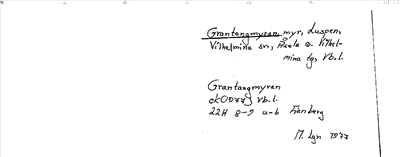 Grantangmyran myr, Luspen,
Vilhelmina sn, Åsele o. Vilhel-
mina tg, Vb.l.
Grantangmyran
Vb.l.
22H 8-9 a-b
M. Lgn 1977